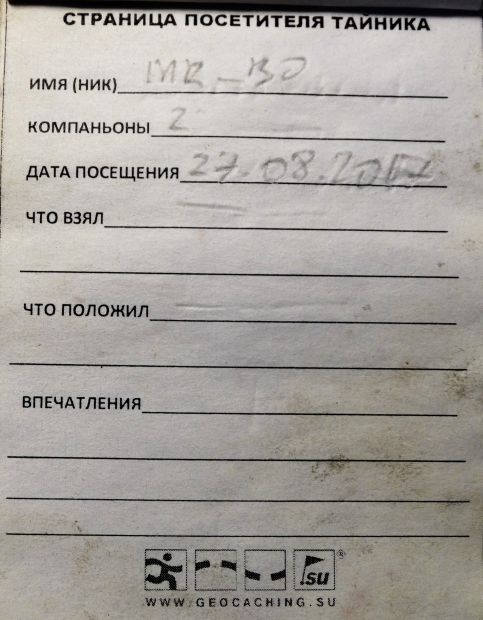 СТРАНИЦА ПОСЕТИТЕЛЯ ТАЙНИКА
ИМЯ (НИК) MR-BO
КОМПАНЬОНЫ 2
ДАТА ПОСЕЩЕНИЯ 27.08.2017
ЧТО ВЗЯЛ
ЧТО ПОЛОЖИЛ
ВПЕЧАТЛЕНИЯ
.su ®
WWW.GEOCACHING.SU